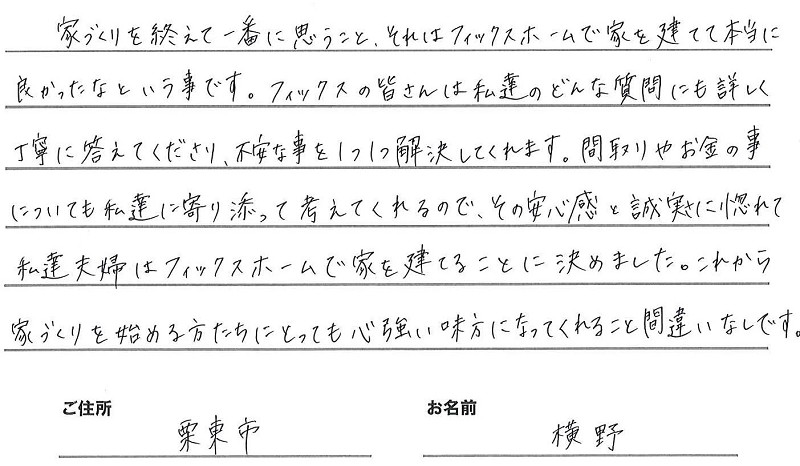 家づくりを終えて一番に思うこと、それはフィックスホームで家を建てて本当に
良かったなという事です。フィックスの皆さんは私達のどんな質問にも詳しく
丁寧に答えてくださり、不安な事を1つ1つ解決してくれます。間取りやお金の事
についても私達に寄り添って考えてくれるので、その安心感と誠実さに惚れて
私達夫婦はフィックスホームで家を建てることに決めました。これから
家づくりを始める方たちにとっても心強い味方になってくれること間違いなしです。
ご住所 栗東市 お名前 横野